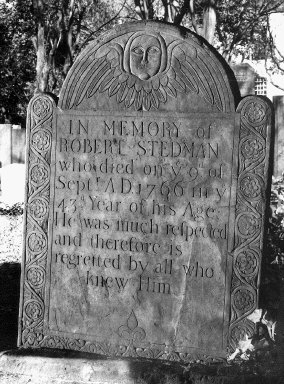 IN MEMORY of
ROBERT STEDMAN
who died on yͤ 9 of
Septʳ A.D. 1766 in y
43ᵈ Year of his Age
He was much respected
and therefore is
regretted by all who
knew Him